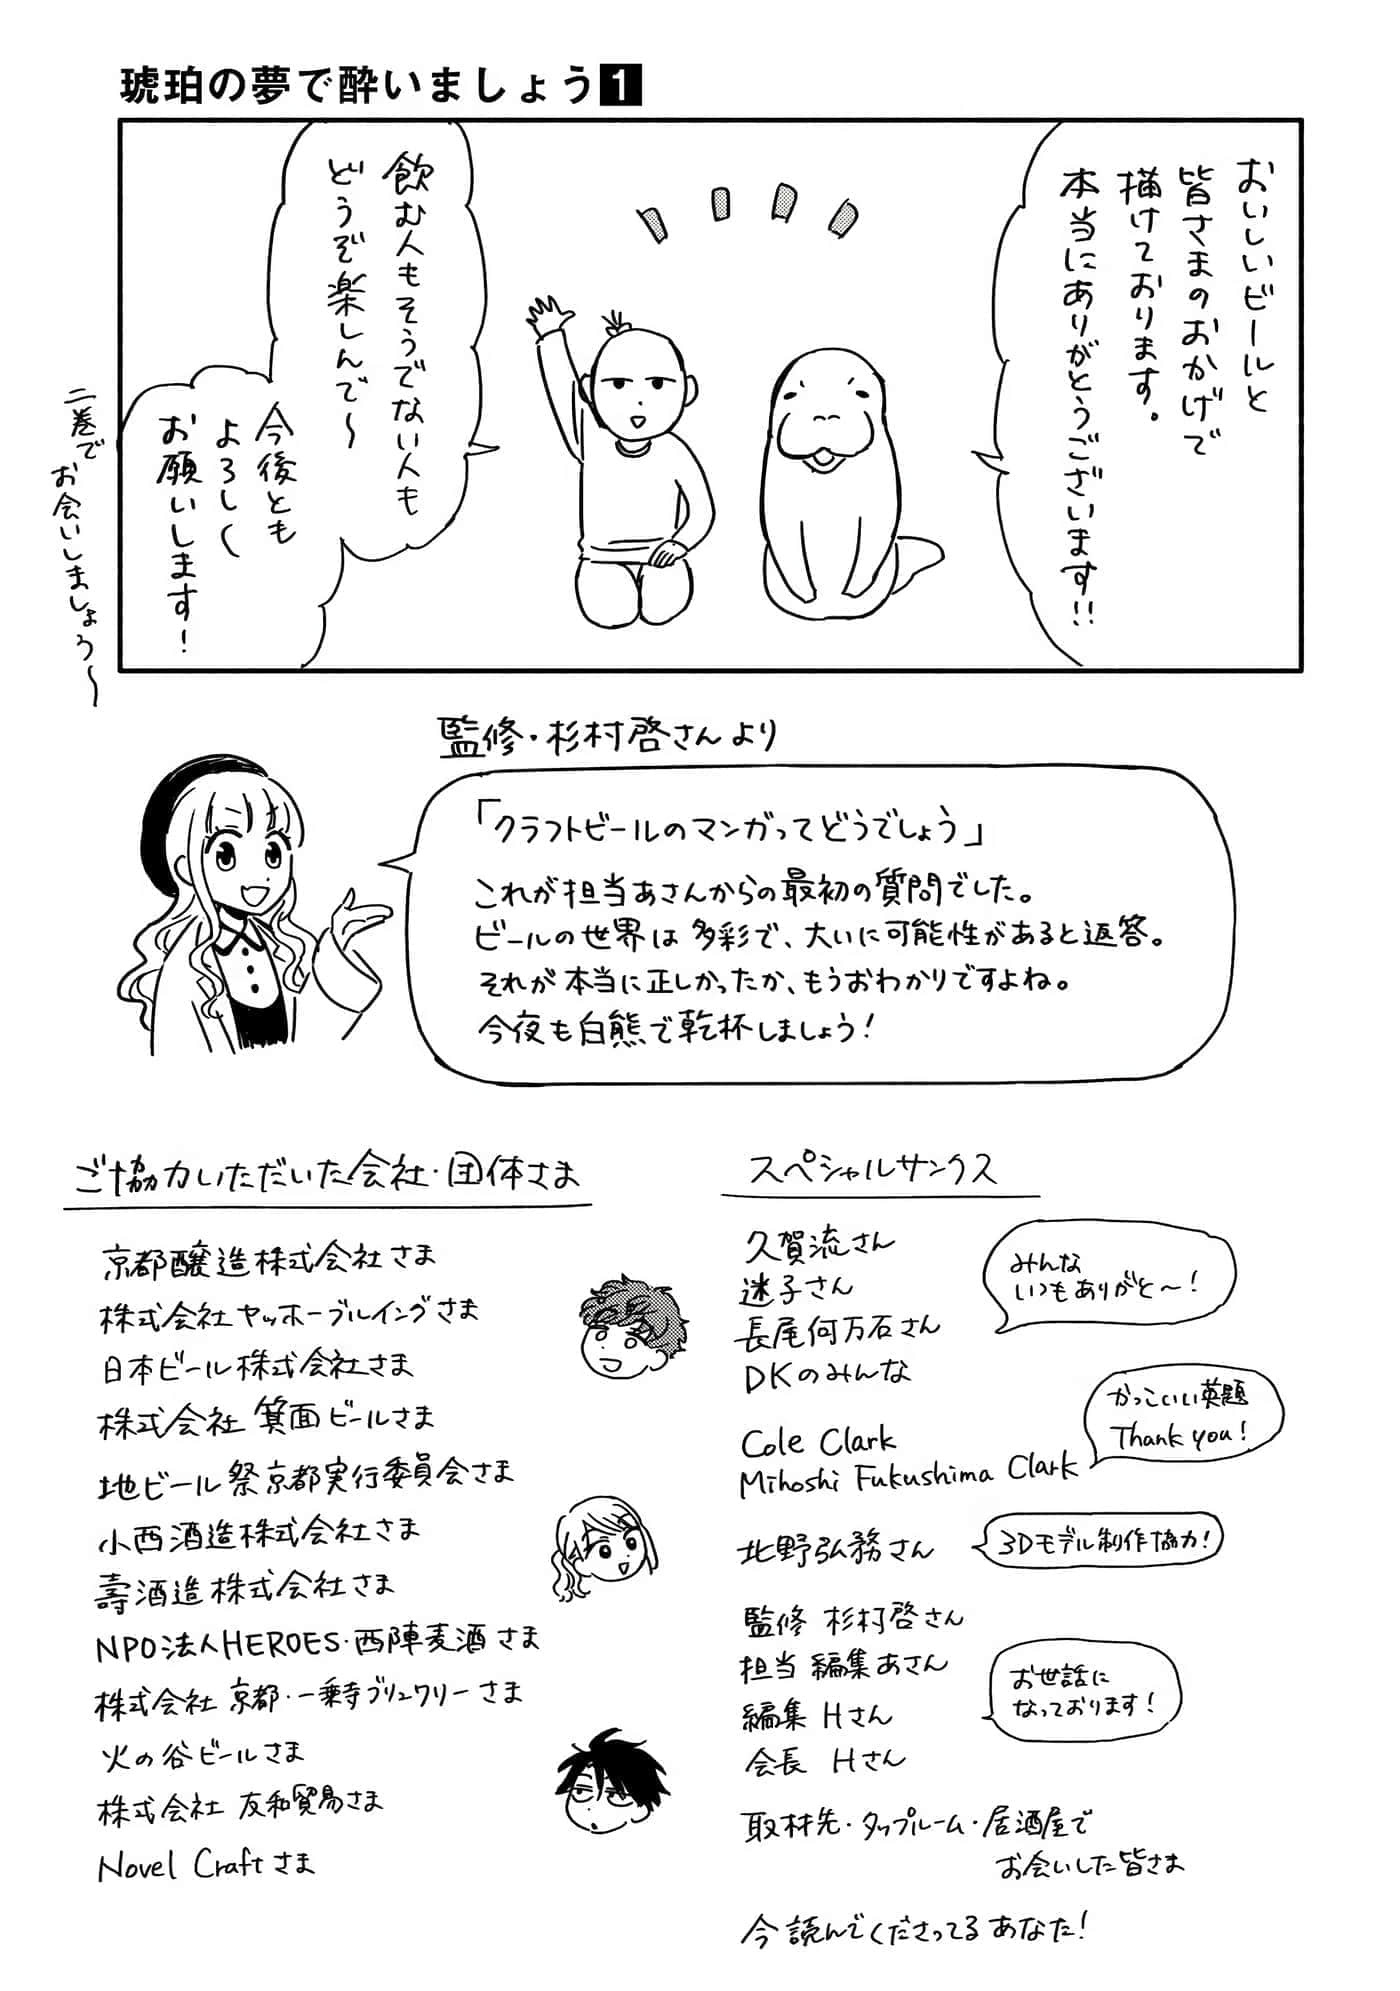 琥珀の夢で酔いましょう1
おいしいビールと
皆さまのおかげで
描けております。
本当にありがとうございます!!
飲む人もそうでない人も
どうぞ楽しんで〜
今後とも
よろしく
お願いします!
二巻で
お会いしましょう〜
監修・杉村啓さんより
「クラフトビールのマンガってどうでしょう」
これが担当あさんからの最初の質問でした。
ビールの世界は多彩で、大いに可能性があると返答。
それが本当に正しかったか、もうおわかりですよね。
今夜も白熊で乾杯しましょう!
ご協力いただいた会社・団体さま
京都醸造株式会社さま
株式会社ヤッホーブルイングさま
日本ビール株式会社さま
株式会社箕面ビールさま
地ビール祭京都実行委員会さま
小西酒造株式会社さま
壽酒造株式会社さま
NPO法人HEROES・西陣麦酒さま
株式会社京都・一乗寺ブリュワリーさま
火の谷ビールさま
株式会社友和貿易さま
Novel Craftさま
スペシャルサンクス
久賀流さん
迷子さん
長尾何万石さん
DKのみんな
みんな
いつもありがと〜!
Cole Clark
Mihoshi Fukushima Clark
かっこいい英題
Thank you!
北野弘務さん
3Dモデル制作協力!
監修 杉村啓さん
担当 編集あさん
編集 Hさん
会長 Hさん
お世話に
なっております!
取材先・タップルーム・居酒屋で
お会いした皆さま
今読んでくださってるあなた!